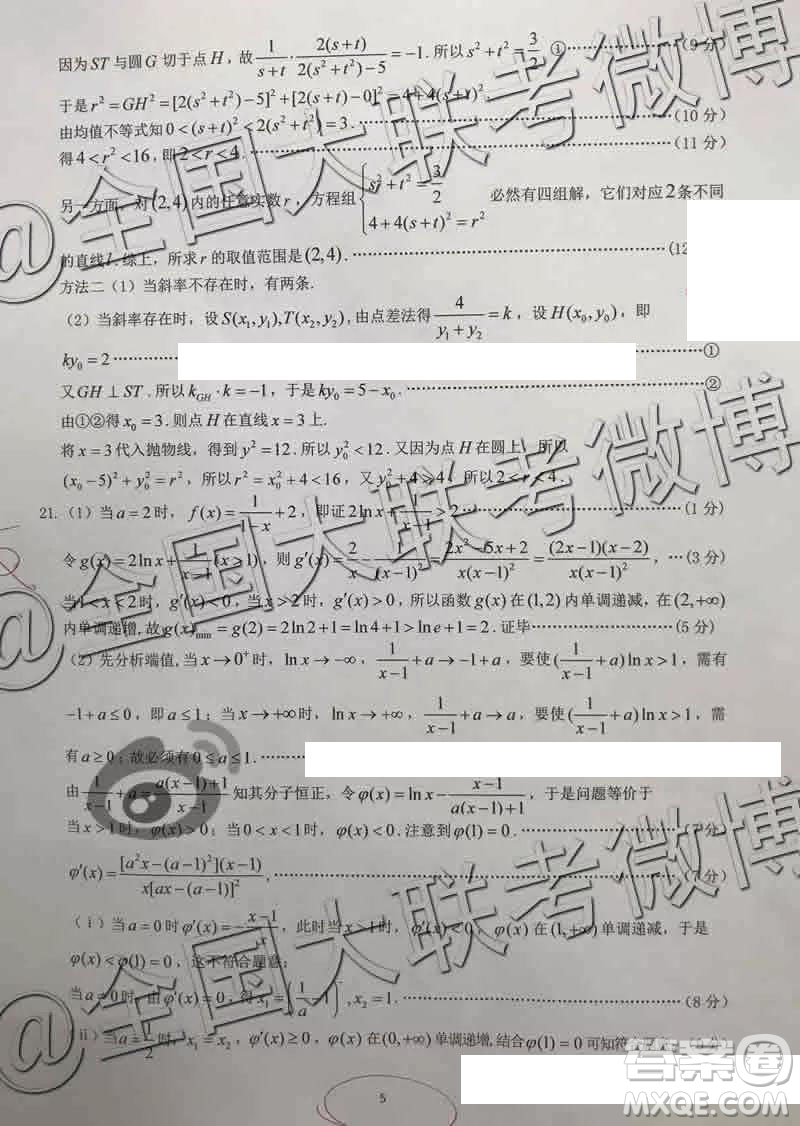 因为ST与圆G切于点H，故 1/(s+t)·2(s+t)/(2(s²+t²)-5)=-1.所以s²+t²=3/2 ①……(9分)
于是r²=GH²=[2(s²+t²)-5]²+[2(s+t)-0]²=4+4(s+t)².
由均值不等式知0<(s+t)²<2(s²+t²)=3.……(10分)
得4<r²<16,即2<r<4.……(11分)
另一方面，对(2,4)内的任意实数r，方程组{s²+t²=3/2 4+4(s+t)²=r² 必然有四组解，它们对应2条不同
的直线l.综上，所求r的取值范围是(2,4).……(12
方法二（1）当斜率不存在时，有两条.
（2）当斜率存在时，设S(x₁,y₁),T(x₂,y₂),由点差法得4/(y₁+y₂)=k，设H(x₀,y₀)，即
ky₀=2…………①
又GH⊥ST.所以k_GH·k=-1，于是ky₀=5-x₀.……②
由①②得x₀=3.则点H在直线x=3上.
将x=3代入抛物线，得到y²=12.所以y₀²<12.又因为点H在圆上，所以
(x₀-5)²+y₀²=r²，所以r²=y₀²+4<16，又y₀²+4>4，所以2<r<4.
21.（1）当a=2时，f(x)=1/(1-x)+2，即证2lnx+1/(x-1)>2……(1分)
令g(x)=2lnx+1/(x-1)(x>1)，则g′(x)=2/x-1/(x-1)²=(2x²-5x+2)/(x(x-1)²)=(2x-1)(x-2)/(x(x-1)²)，…(3分)
当1<x<2时，g′(x)<0，当x>2时，g′(x)>0，所以函数g(x)在(1,2)内单调递减，在(2,+∞)
内单调递增,故g(x)min=g(2)=2ln2+1=ln4+1>lne+1=2.证毕……(5分)
（2）先分析端值,当x→0⁺时，lnx→-∞，1/(x-1)+a→-1+a，要使(1/(x-1)+a)lnx>1，需有
-1+a≤0，即a≤1；当x→+∞时，lnx→+∞，1/(x-1)+a→a，要使(1/(x-1)+a)lnx>1，需
有a≥0；故必须有0≤a≤1.……
由1/(x-1)+a=(a(x-1)+1)/(x-1)知其分子恒正，令φ(x)=lnx-(x-1)/(a(x-1)+1)，于是问题等价于
当x>1时，φ(x)>0；当0<x<1时，φ(x)<0.注意到φ(1)=0.……(7分)
φ′(x)=[a²x-(a-1)²](x-1)/(x[ax-(a-1)]²).……(7分)
（i）当a=0时φ′(x)=-(x-1)/x，此时当x>1时，φ′(x)<0，φ(x)在(1,+∞)单调递减，于是
φ(x)<φ(1)=0，这不符合题意；
当a≠0时,由φ′(x)=0，得x₁=(1/a-1)²,x₂=1.……(8分)
ii）当a=1/2时，x₁=x₂，φ′(x)≥0，φ(x)在(0,+∞)单调递增,结合φ(1)=0可知符
5
@全国大联考微博
@全国大联考微博
@全国大联考微博
答案圈
MXQE.COM